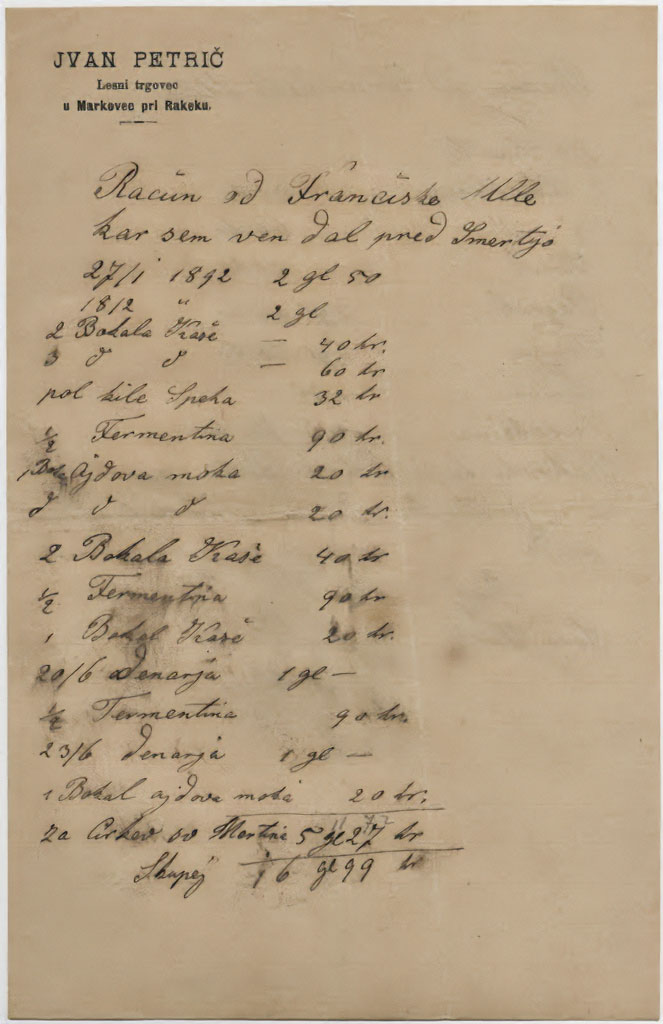 JVAN PETRIČ
Lesni trgovec
u Markovec pri Rakeku.
Račun od Frančiske Ulle
kar sem ven dal pred Smertjo
27/1 1892 2 gl 50
18/2 " 2 gl
2 Bokala Kaše — 40 kr.
3 d d — 60 kr
pol kile Speha 32 kr
1/2 Fermentina 90 kr.
Ajdova moka 20 kr
d d d 20 kr.
2 Bokala Kaše 40 kr
1/2 Fermentina 90 kr
1 Bokal Kaše 20 kr.
20/6 denarja 1 gl —
1/2 Fermentina 90 kr.
23/6 denarja 1 gl —
1 Bokal ajdova moka 20 kr.
za Cirkev sv Martina 5 gl 27 kr
Skupej 16 gl 99 kr